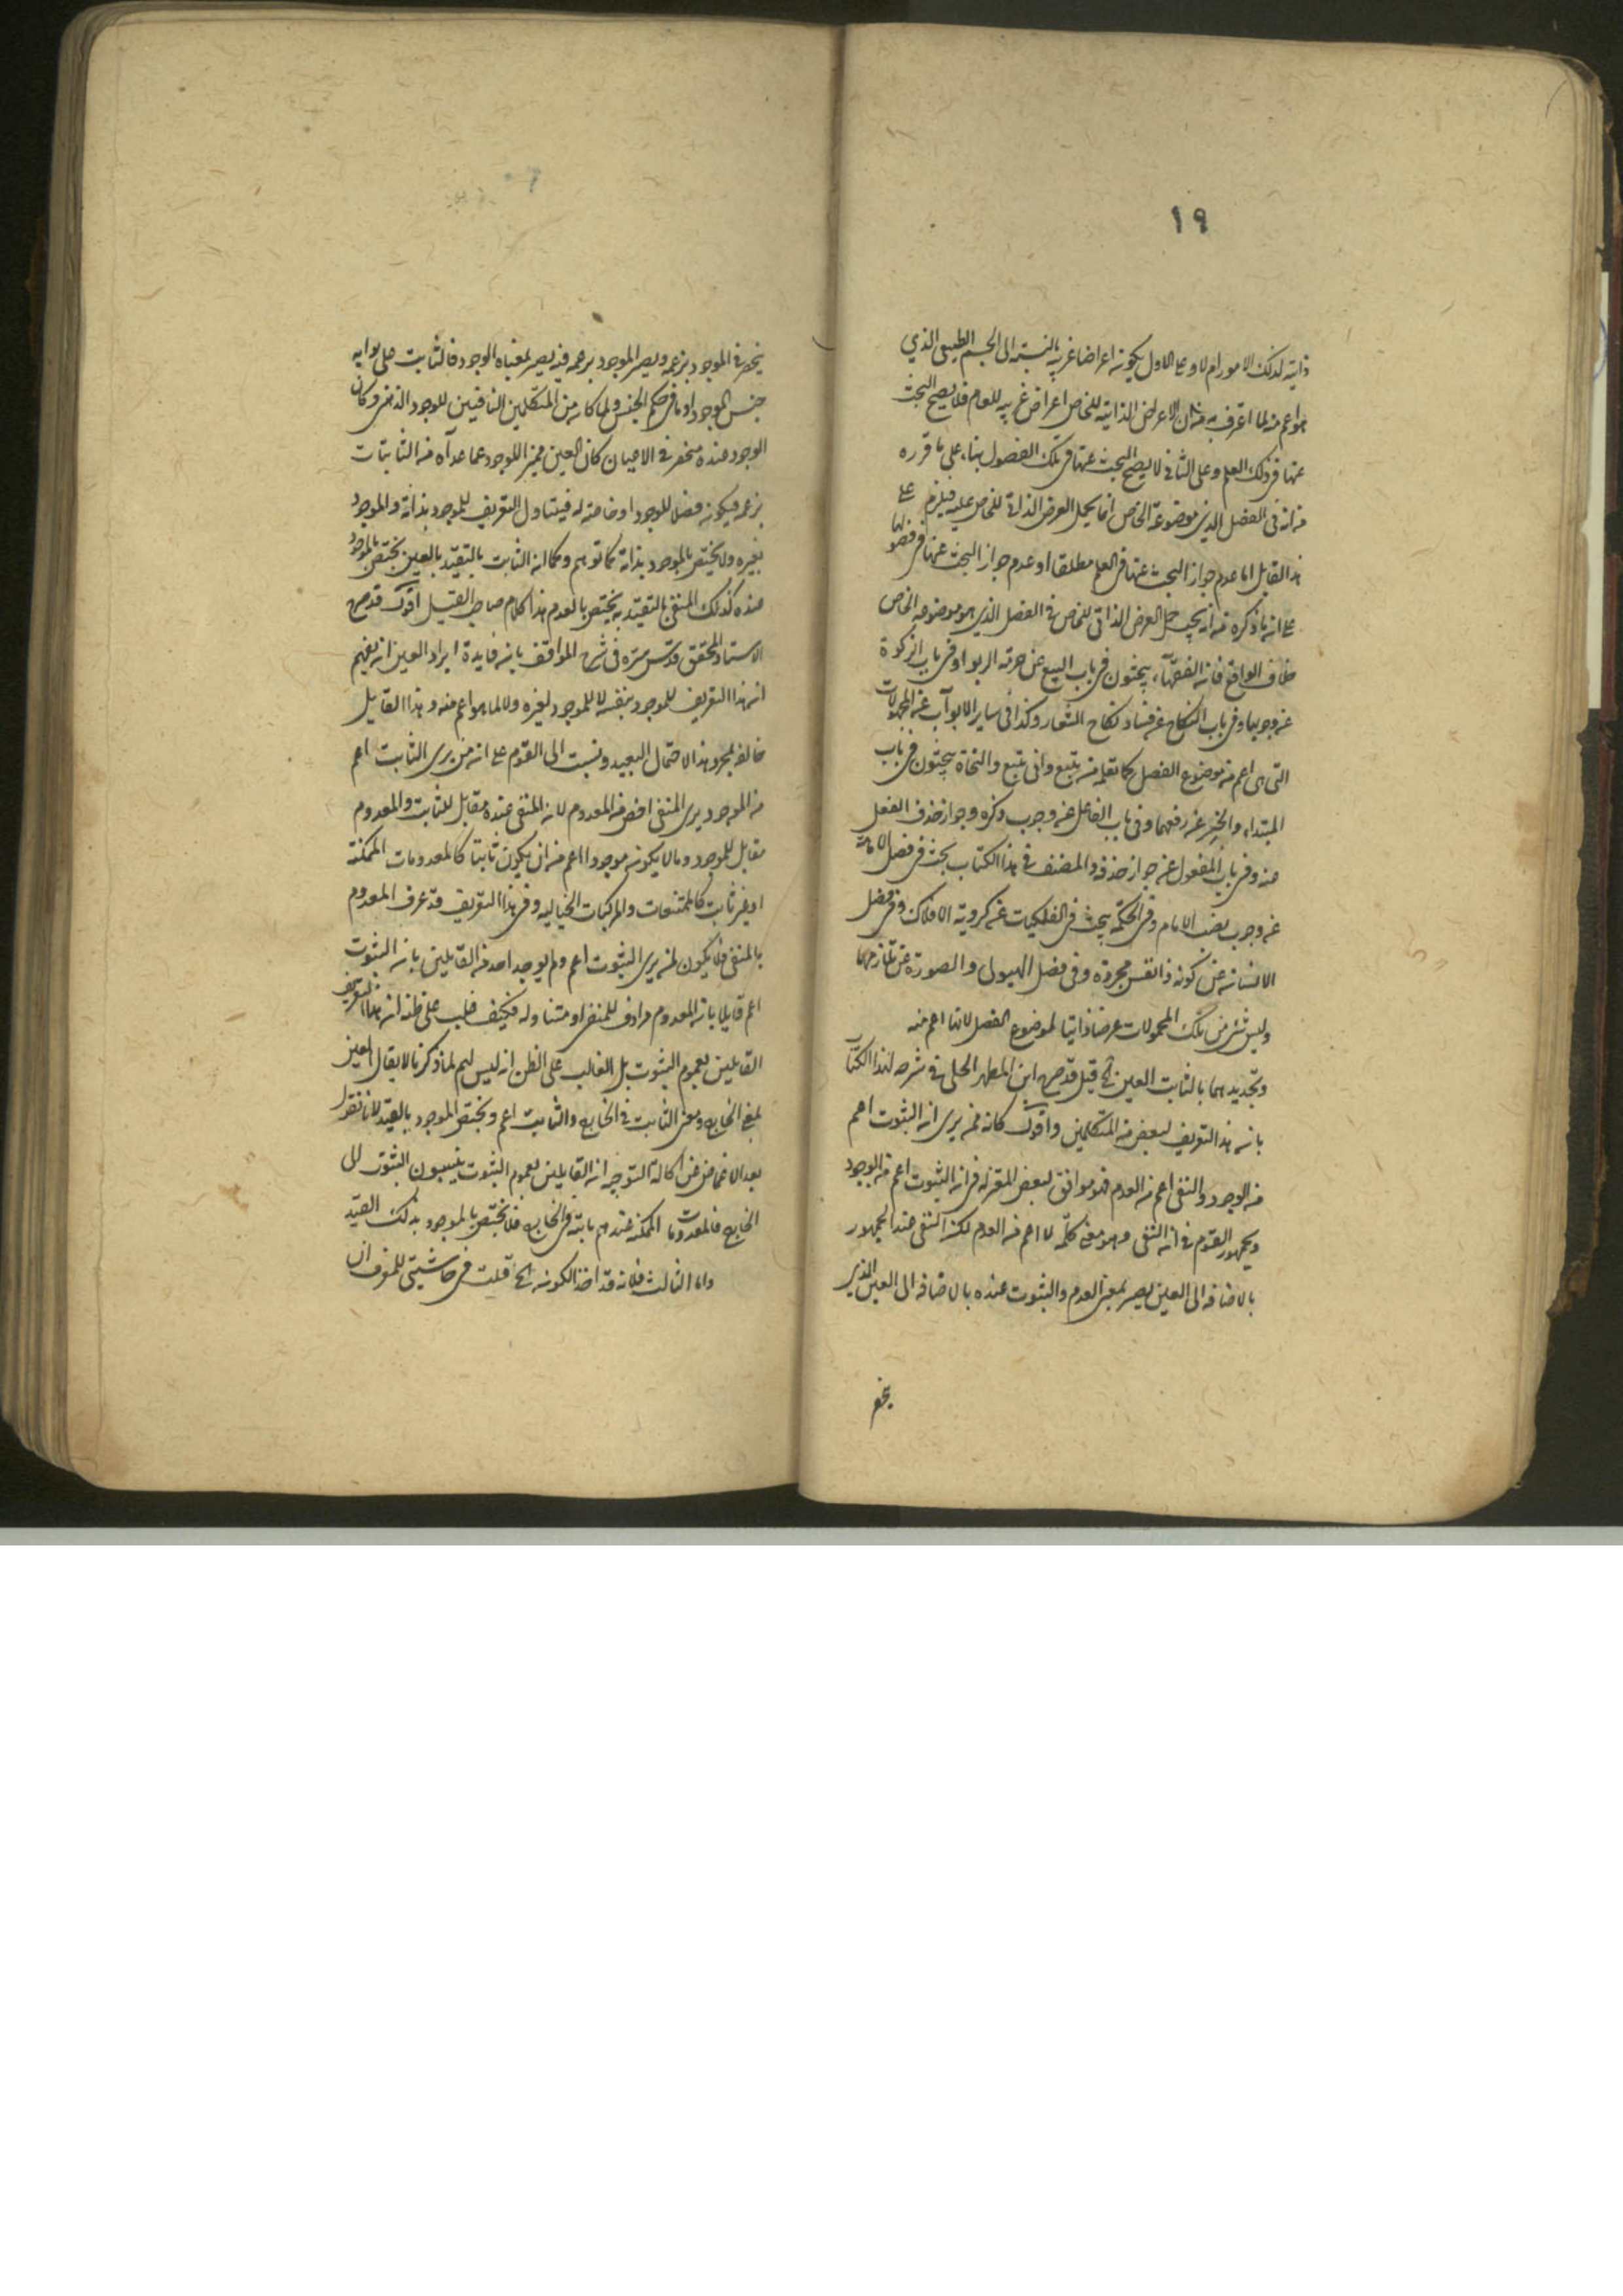 ١٩
ذاتية لذلك الامور ام لا وعلى الاول يكون اعراضا غريبة بالنسبة الى الجسم الطبيعى الذي
هو اعم منه لما اعترف به من ان الاعراض الذاتية للخاص اعراض غريبة للعام فلا يصح البحث
عنها فى ذلك العلم وعلى الثانى لا يصح البحث عنها فى تلك الفصول بناء على ما قرره
من ان فى الفصل الذى موضوعه الخاص انما يحمل العرض الذاتى للخاص عليه فيلزم على
هذا القايل اما عدم جواز البحث عنها فى العلم مطلقا او عدم جواز البحث عنها فى فصولها
على ان ما ذكره من انه يجب حمل العرض الذاتى للخاص فى الفصل الذي هو موضوعه الخاص
خلاف الواقع فان الفقهاء يبحثون فى باب البيع عن حرمة الربوا وفى باب الزكوة
عن وجوبها وفى باب النكاح عن فساد نكاح الشغار وكذا فى ساير الابواب عن المحمولات
التى هى اعم من موضوع الفصل كما تعلم من يتبع وانى يتبع والنحاة يبحثون فى باب
المبتداء والخبر عن رفعهما وفى باب الفاعل عن وجوب ذكره وجواز حذف الفعل
عنه وفى باب المفعول عن جواز حذفه والمصنف فى هذا الكتاب بحث فى فصل الامامة
عن وجوب نصب الامام وفى الحكمة يبحث فى الفلكيات عن كروية الافلاك وفى فصل
الانسان عن كونه ذا نفس مجردة وفى فصل الهيولى والصورة عن تلازمهما
وليس شئ من تلك المحمولات عرضا ذاتيا لموضوع الفصل لانها اعم منه
وتحديدهما بالثابت العين الخ قيل قد صرح ابن المطهر الحلى فى شرحه لهذا الكتاب
بان هذا التعريف لبعض من المتكلمين واقول كانه ممن يرى ان الثبوت اعم
من الوجود والنفى اعم من العدم فهو موافق لبعض المعتزلة فى ان الثبوت اعم من الوجود
وجمهور القوم فى ان النفى وهو معنى كلمة لا اعم من العدم لكن النفى عند الجمهور
بالاضافة الى العين يصير بمعنى العدم والثبوت عنده بالاضافة الى العين الذي
ينحصر
ينحصر فى الموجود بزعمه ويصير الموجود بزعمه فيه يصير بمعناه الوجود فالثابت على رايه
جنس للموجود او ما فى حكم الجنس ولما كان من المتكلمين النافين للوجود الذهنى وكان
الوجود عنده منحصرا فى الاعيان كان العين مميزا للوجود عما عداه من الثابتات
بزعمه فيكون فصلا للموجود او خاصة له فيتناول التعريف للموجود بذاته والموجود
بغيره ولا يختص بالموجود بذاته كما توهم وكما ان الثابت بالتقييد بالعين يختص بالموجود
عنده كذلك المنفى بالتقييد به يختص بالعدم هذا كلام صاحب القيل اقول قد صرح
الاستاد المحقق قدس سره فى شرح المواقف بان فايدة ايراد العين ان يفهم
ان هذا التعريف للموجود بنفسه لا للموجود لغيره ولا لما هو اعم منه وهذا القايل
خالفه بمجرد هذا الاحتمال البعيد ونسبت الى القوم على ان من يرى الثابت اعم
من الموجود يرى المنفى اخص من المعدوم لان المنفى عنده مقابل للثابت والمعدوم
مقابل للموجود وما لا يكون موجودا اعم من ان يكون ثابتا كالمعدومات الممكنة
او غير ثابت كالممتنعات والمركبات الخيالية وفى هذا التعريف قد عرف المعدوم
بالمنفى فلا يكون لمن يرى الثبوت اعم ولم يوجد احد من القايلين بان الثبوت
اعم قايلا بان المعدوم مرادف للمنفى او متناوله فكيف غلب على ظنه ان هذا التعريف
القايلين بعموم الثبوت بل الغالب على الظن انه ليس لهم لما ذكرنا لا يقال العين
بمعنى الخارج ومعنى الثابت فى الخارج والثابت اعم ويختص الموجود بالقيد لانا نقول
بعد الاغماض عن ركاكة التوجيه ان القايلين بعموم الثبوت ينسبون الثبوت الى
الخارج فالمعدومات الممكنة عندهم ثابتة فى الخارج فلا يختص بالموجود بذلك القيد
واما الثالث فلانه قد اخذ الكون الخ قلت فى حاشيتى للمعرف ان